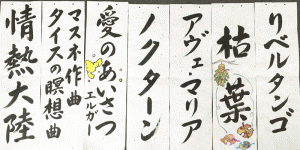 リベルタンゴ
枯葉
アヴェ・マリア
ノクターン
愛のあいさつ
エルガー
タイスの瞑想曲
マスネ作曲
情熱大陸